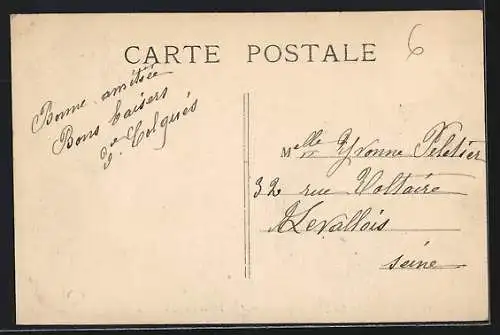 CARTE POSTALE
6
Bonne amitiée
Bons baisers
Melle Yvonne Peletier
32 rue Voltaire
A Levallois
Seine